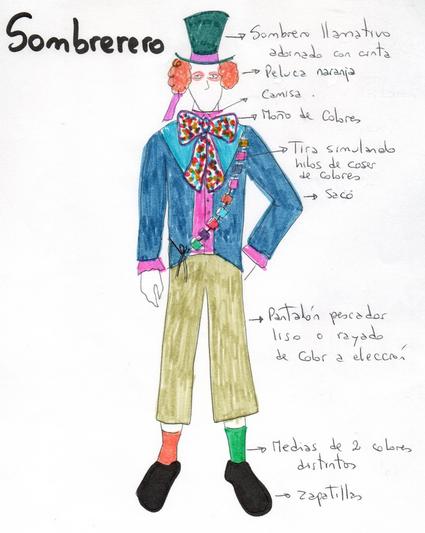 Sombrerero
Sombrero llamativo
adornado con cinta
Peluca naranja
Camisa.
Moño de Colores
Tira simulando
hilos de coser
de colores
Sacó
Pantalón pescador
liso o rayado
de color a elección
Medias de 2 colores
distintos
Zapatillas